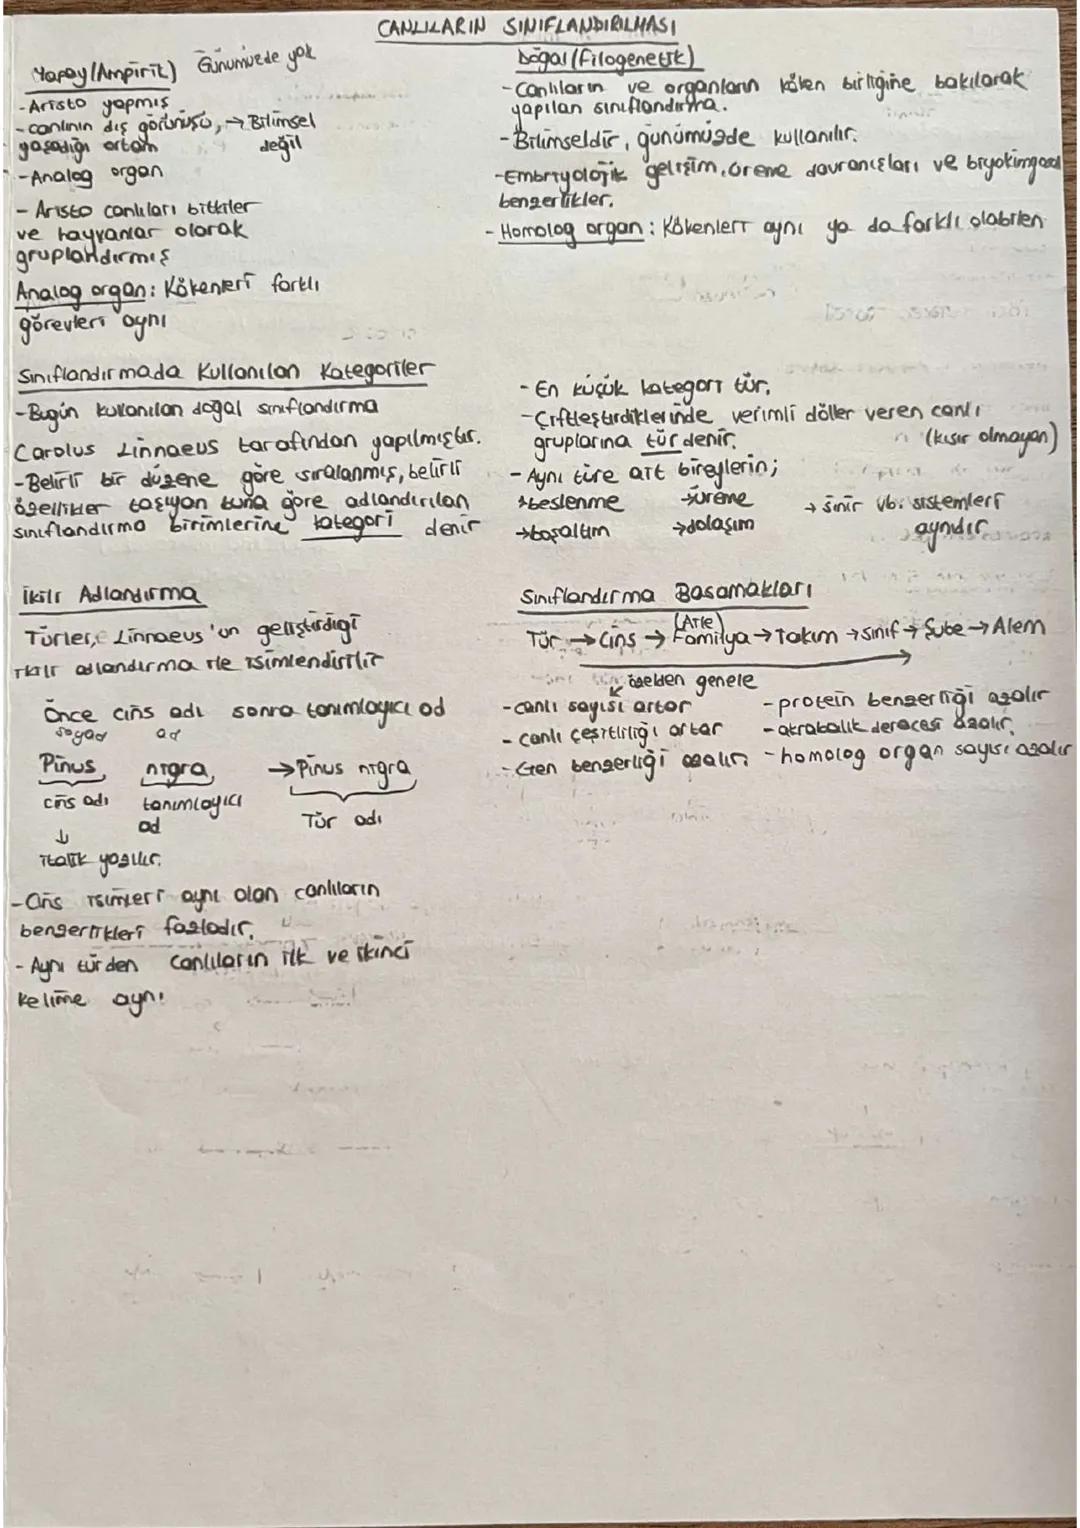 CANLILARIN SINIFLANDIRILMASI
Yapay (Ampirik) Günümüzde yok
- Aristo yapmış
- canlının dış görünüşü, → Bilimsel
yaşadığı ortam değil
- Analog organ
- Aristo canlıları bitkiler
ve hayvanlar olarak
gruplandırmış
Analog organ: Kökenleri farklı
görevleri aynı
Doğal (Filogenetik)
- Canlıların ve organların köken birliğine bakılarak
yapılan sınıflandırma.
- Bilimseldir, günümüzde kullanılır.
- Embriyolojik gelişim, üreme davranışları ve biyokimyasal
benzerlikler.
- Homolog organ: Kökenleri aynı ya da farklı olabilen
Sınıflandırmada Kullanılan Kategoriler
- Bugün kullanılan doğal sınıflandırma
Carolus Linnaeus tarafından yapılmıştır.
- Belirli bir düzene göre sıralanmış, belirli
özellikler taşıyan buna göre adlandırılan
sınıflandırma birimlerine kategori denir
- En küçük kategori tür.
- Çiftleştirdiklerinde verimli döller veren canlı
gruplarına tür denir. (kısır olmayan)
- Aynı türe ait bireylerin;
→beslenme →üreme → sinir vb. sistemleri
→boşaltım →dolaşım aynıdır
İkili Adlandırma
Türler, Linnaeus'un geliştirdiği
ikili adlandırma ile isimlendirilir
Önce cins adı sonra tanımlayıcı ad
soyad ad
Pinus nigra → Pinus nigra
cins adı tanımlayıcı ad Tür adı
↓
italik yazılır.
- Cins isimleri aynı olan canlıların
benzerlikleri fazladır.
- Aynı türden canlıların ilk ve ikinci
kelime aynı
Sınıflandırma Basamakları
(Aile)
Tür → Cins → Familya → Takım → sınıf → Şube → Alem
özelden genele
- canlı sayısı artar
- canlı çeşitliliği artar
- Gen benzerliği azalır
- protein benzerliği azalır
- akrabalık derecesi azalır.
- homolog organ sayısı azalır